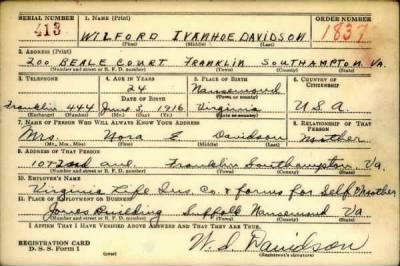 SERIAL NUMBER 1. NAME (Print) ORDER NUMBER
413 WILFORD IVANHOE DAVIDSON 1837
(First) (Middle) (Last)
2. ADDRESS (Print)
200 BEALE COURT FRANKLIN SOUTHAMPTON VA.
(Number and street or R. F. D. number) (Town) (County) (State)
3. TELEPHONE 4. AGE IN YEARS 5. PLACE OF BIRTH 6. COUNTRY OF CITIZENSHIP
24 Nansemond
(Town or county)
DATE OF BIRTH
Franklin 444 June 5, 1916 Virginia USA
(Exchange) (Number) (Mo.) (Day) (Yr.) (State or country)
7. NAME OF PERSON WHO WILL ALWAYS KNOW YOUR ADDRESS 8. RELATIONSHIP OF THAT PERSON
Mrs. Nora E Davidson Mother
(Mr., Mrs., Miss) (First) (Middle) (Last)
9. ADDRESS OF THAT PERSON
2nd ave. Franklin Southampton Va
(Number and street or R. F. D. number) (Town) (County) (State)
10. EMPLOYER'S NAME
Virginia Life Ins Co. & farms for Self & Mother
11. PLACE OF EMPLOYMENT OR BUSINESS
Jones Building Suffolk Nansemond Va
(Number and street or R. F. D. number) (Town) (County) (State)
I AFFIRM THAT I HAVE VERIFIED ABOVE ANSWERS AND THAT THEY ARE TRUE.
REGISTRATION CARD
D. S. S. Form 1 W. I. Davidson
(Registrant's signature)